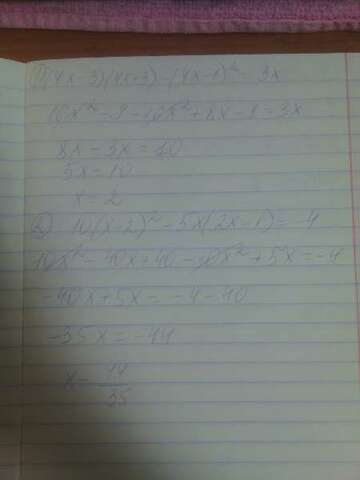 1) (4x-3)(4x+3) - (4x-1)² = 3x
16x² - 9 - 16x² + 8x - 1 = 3x
8x - 3x = 10
5x = 10
x = 2
2) 10(x-2)² - 5x(2x-1) = -4
10x² - 40x + 40 - 10x² + 5x = -4
-40x + 5x = -4 - 40
-35x = -44
x = 44/35